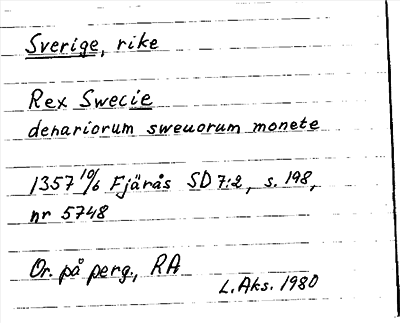 Sverige, rike
Rex Swecie
denariorum sweuorum monete
1357 10/6 Fjärås SD 7:2, s. 198,
nr 5748
Or. på perg., RA
L. Aks. 1980